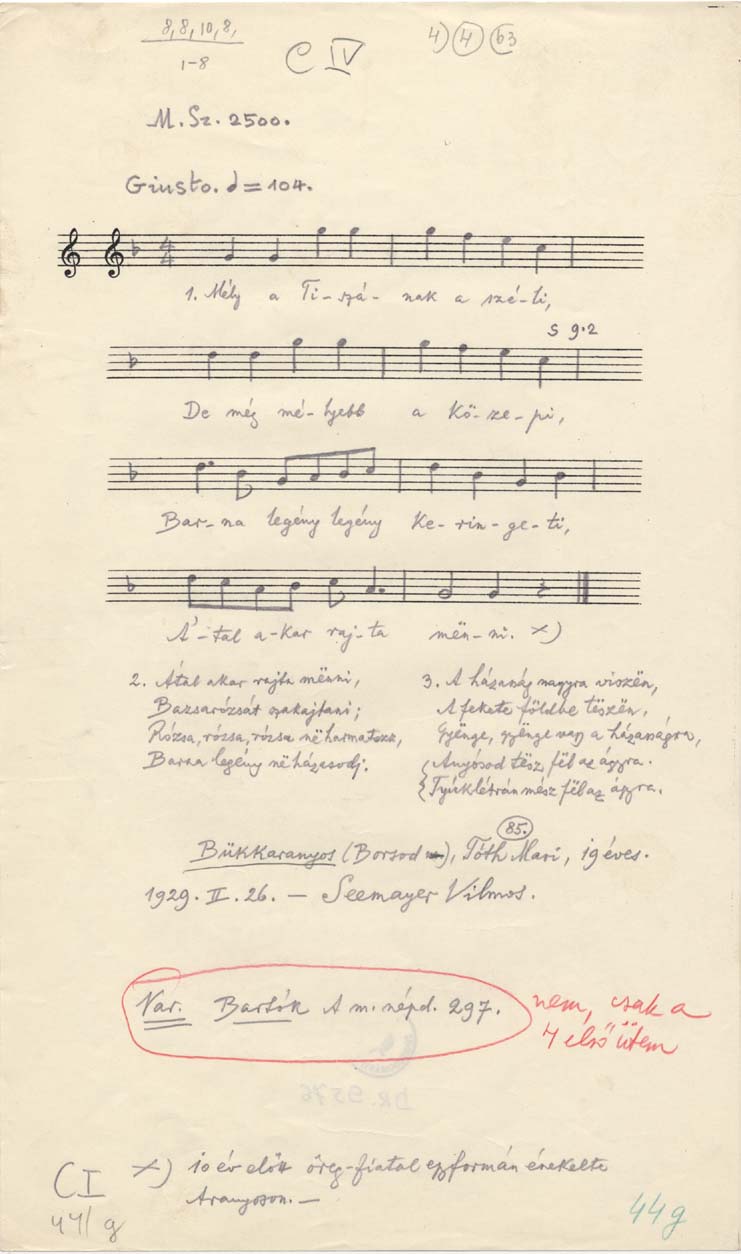 8,8,10,8,
1-8
C IV
4) 4 63
M. Sz. 2500.
Giusto. ♩ = 104.
4
4
1. Mély a Ti-szá-nak a szé-li,
S 9.2
De még mé-lyebb a Kö-ze-pi,
Bar-na legény legény Ke-rin-ge-ti,
Á'-tal a-kar raj-ta mën-ni. x)
2. Által akar rajta mënni,
Bazsarózsát szakajtani;
Rózsa, rózsa, rózsa në harmatozz,
Barna legény në házasodj.
3. A házasság nagyra viszën,
A fekete földbe tëszën,
Gyönge, gyönge vagy a házasságra,
Anyósod tësz fël az ágyra.
Tyúklétrán mész fël az ágyra.
85.
Bükkaranyos (Borsod), Tóth Mari, 19 éves.
1929. II. 26. — Seemayer Vilmos.
Var. Bartók A m. népd. 297.
nem, csak a
4 első ütem
DR. 9576
CI
44/g
x) 10 év előtt öreg-fiatal egyformán énekelte
Aranyoson. —
44g